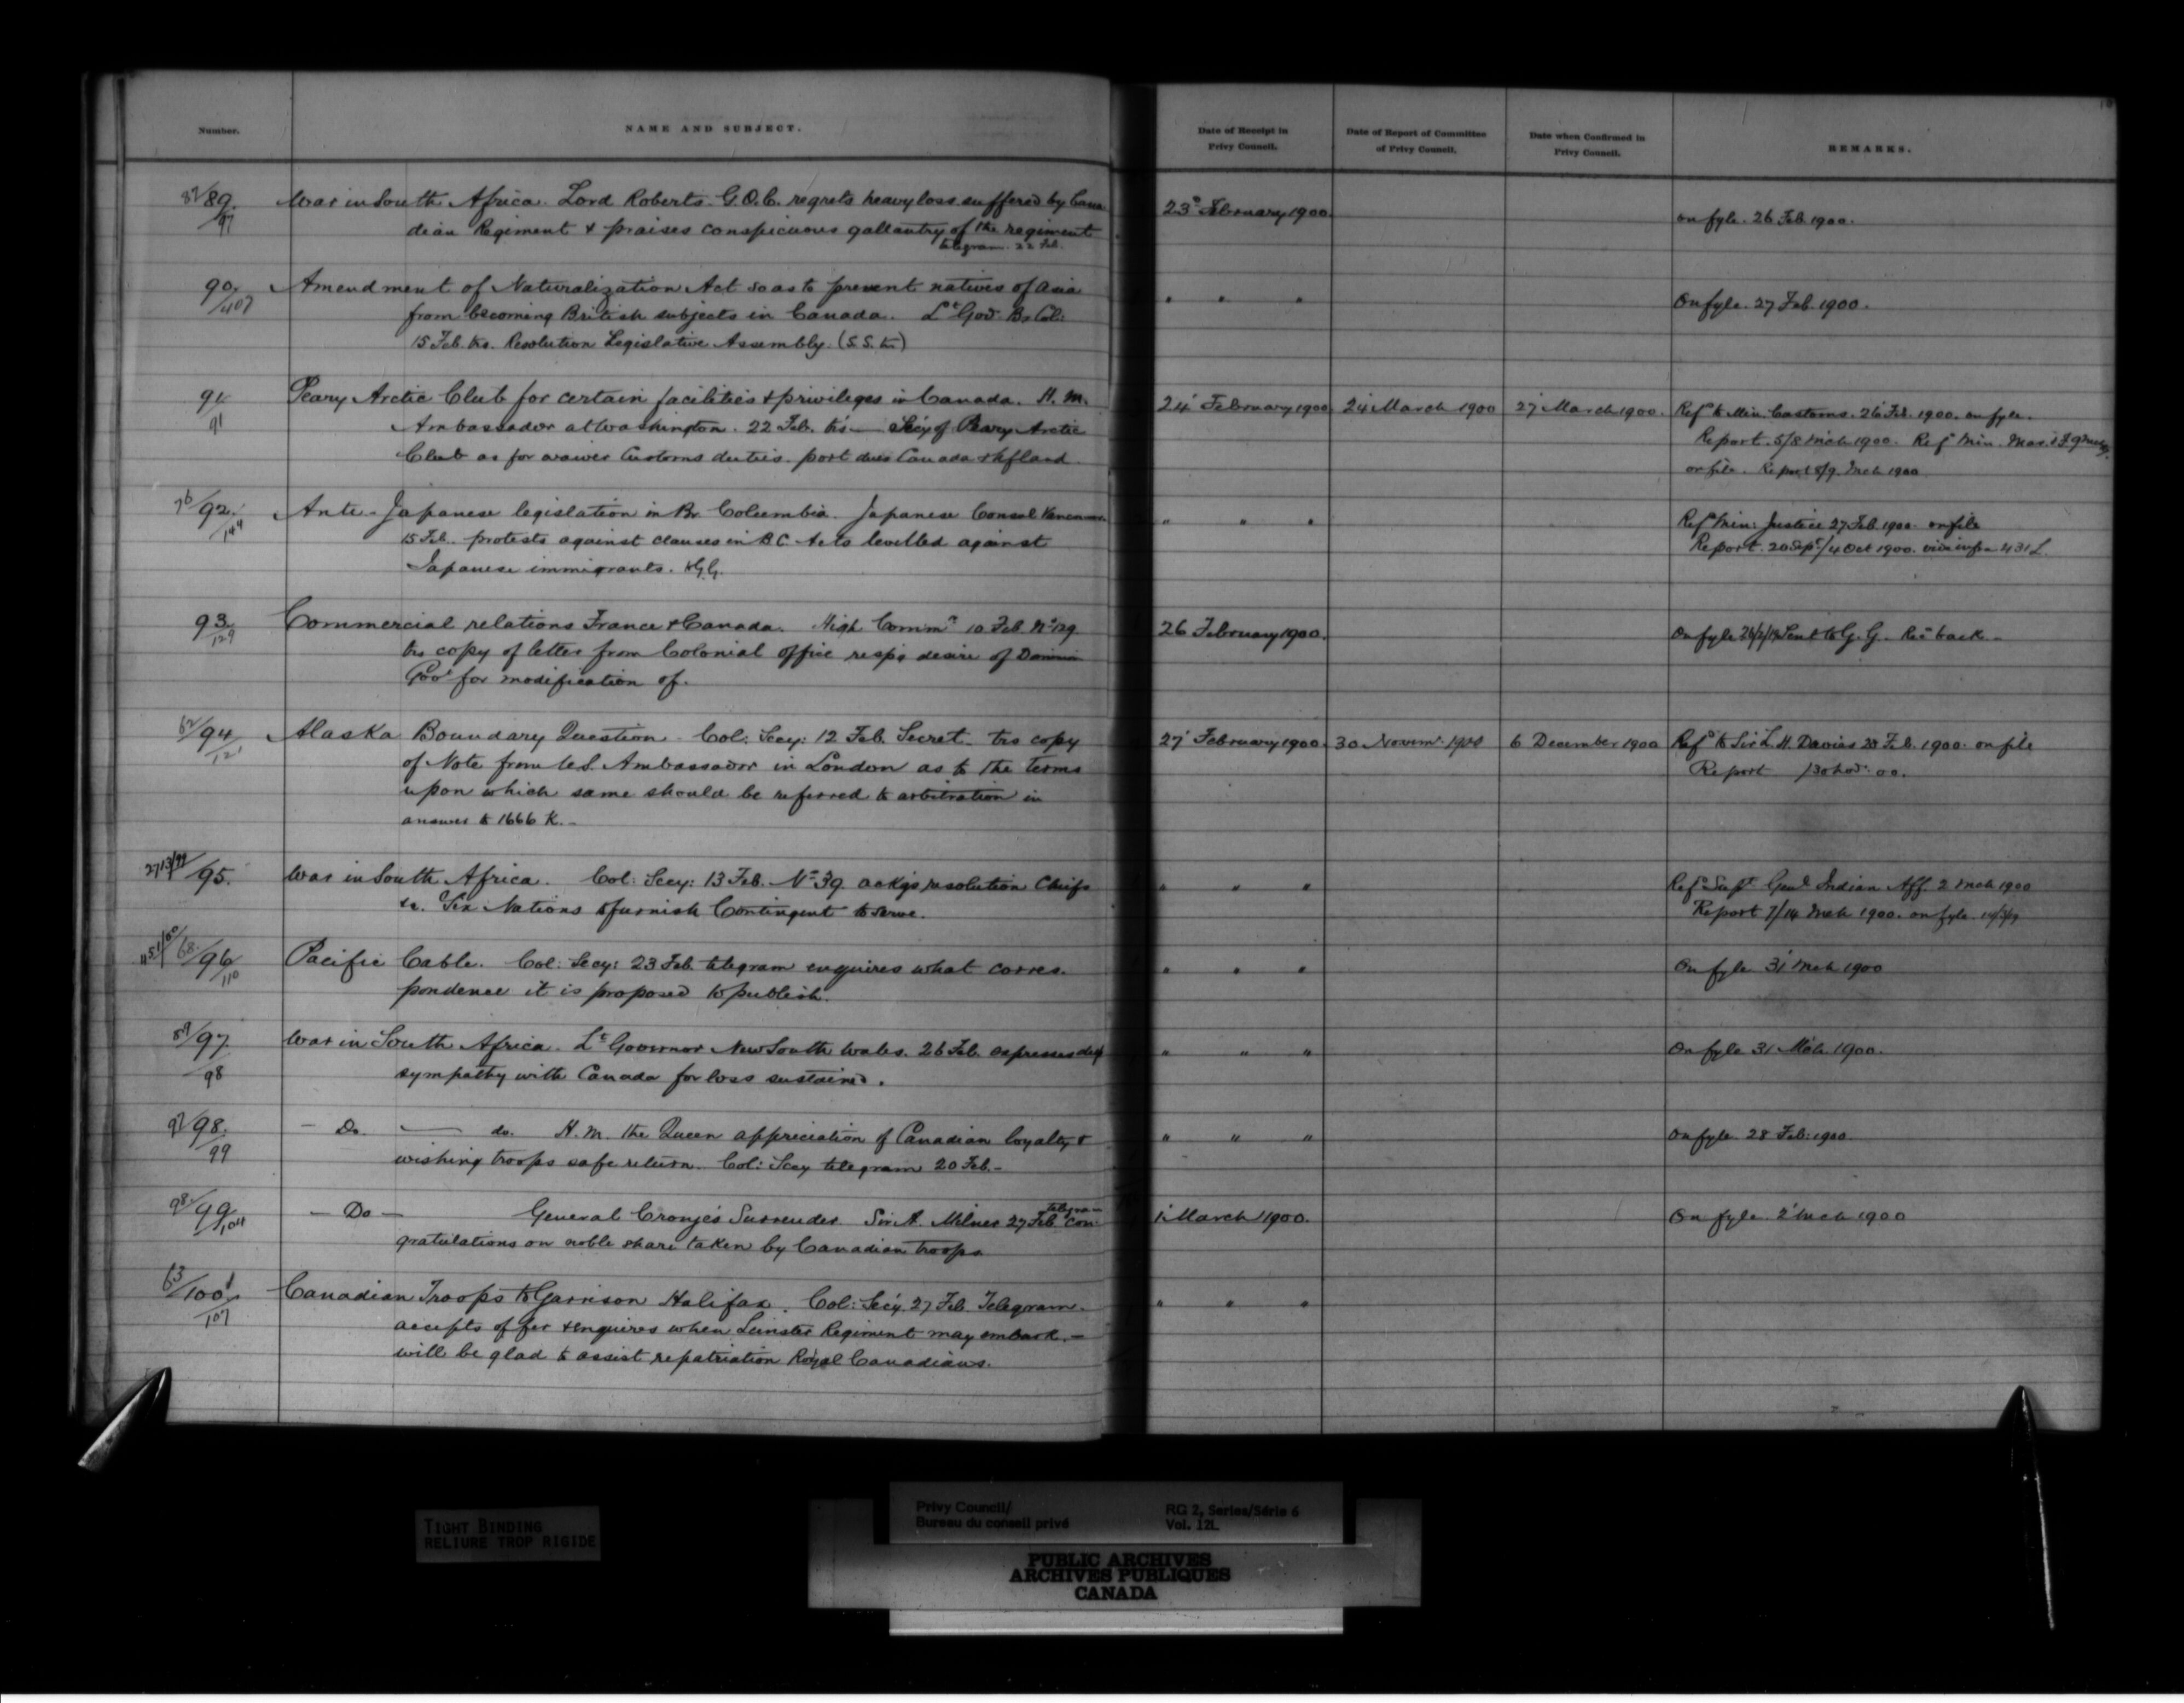 Number. NAME AND SUBJECT. Date of Receipt in Privy Council. Date of Report of Committee of Privy Council. Date when Confirmed in Privy Council. REMARKS.
87/89./97 War in South Africa. Lord Roberts. G.O.C. regrets heavy loss suffered by Cana 23d February 1900. on fyle. 26 Feb. 1900.
dian Regiment & praises conspicuous gallantry of the regiment
telegram. 22 Feb.
90./407 Amendment of Naturalization Act so as to prevent natives of Asia " " " On fyle. 27 Feb. 1900.
from becoming British subjects in Canada. Lt Govr Br. Col:
15 Feb. trs. Resolution Legislative Assembly. (S.S. to)
91/91 Peary Arctic Club for certain facilities & privileges in Canada. H.M. 24' February 1900 24' March 1900 27' March 1900. Refd to Min. Customs. 26' Feb. 1900. on fyle.
Ambassador at Washington. 22 Feb. trs — Sec'y of Peary Arctic Report. 5/8 Mch 1900. Refd Min. Mar. & F. 9 Mch
Club as for waiver Customs duties. port dues Canada & Nfland on file. Report 8/9. Mch 1900
76/92./144 Anti-Japanese legislation in Br. Columbia. Japanese Consul Vancouver " " " Refd Min: Justice 27 Feb. 1900. on file
15 Feb. protests against clauses in B C Acts levelled against Report. 20 Sept/4 Oct 1900. vide infra 431 L.
Japanese immigrants. &G.G.
93/129 Commercial relations France & Canada. High Commr 10 Feb. No 129 26 February 1900. On fyle Sent to G.G. Recd back —
trs copy of letter from Colonial Office respg desire of Dominion
Govt for modification of.
62/94/121 Alaska Boundary Question. Col. Secy: 12 Feb. Secret. trs copy 27' February 1900. 30 Novemr 1900 6 December 1900 Refd to Sir L. H. Davies 28 Feb. 1900. on file
of Note from U.S. Ambassador in London as to the terms Report /30 Nov. 00.
upon which same should be referred to arbitration in
answer to 1666 K. —
2713/99/95. War in South Africa. Col: Secy: 13 Feb. No 39. ackgs resolution Chiefs " " " Refd Supt Genl Indian Aff. 2 Mch 1900
&c. Six Nations to furnish Contingent to serve. Report 7/14 Mch 1900. on fyle.
1151/00/68/96/110 Pacific Cable. Col: Secy: 23 Feb. telegram enquires what corres- " " " On fyle 31' Mch 1900
pondence it is proposed to publish.
89/97/98 War in South Africa. Lt Governor New South Wales. 26 Feb. expresses deep " " " On fyle 31 Mch. 1900.
sympathy with Canada for loss sustained.
97/98./99 — Do. — do. H.M. the Queen appreciation of Canadian loyalty & " " " On fyle. 28 Feb: 1900.
wishing troops safe return. Col: Secy telegram 20 Feb. —
98/99/104 — Do — General Cronje's Surrender Sir A. Milner 27 Feb. telegram con- 1' March 1900. On fyle. 2' Mch 1900
gratulations on noble share taken by Canadian troops.
63/100/107 Canadian Troops to Garrison Halifax. Col: Sec'y. 27 Feb. Telegram. " " "
accepts offer & enquires when Leinster Regiment may embark. —
will be glad to assist repatriation Royal Canadians.
TIGHT BINDING
RELIURE TROP RIGIDE
Privy Council/ RG 2, Series/Série 6
Bureau du conseil privé Vol. 12L
PUBLIC ARCHIVES
ARCHIVES PUBLIQUES
CANADA